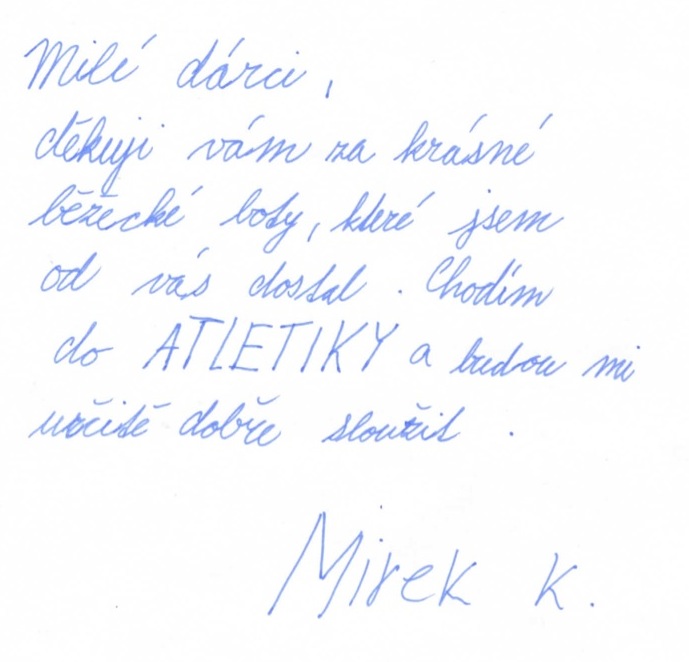 Milé dárci,
děkuji vám za krásné
běžecké boty, které jsem
od vás dostal. Chodím
do ATLETIKY a budou mi
určitě dobře sloužit.
Mirek K.